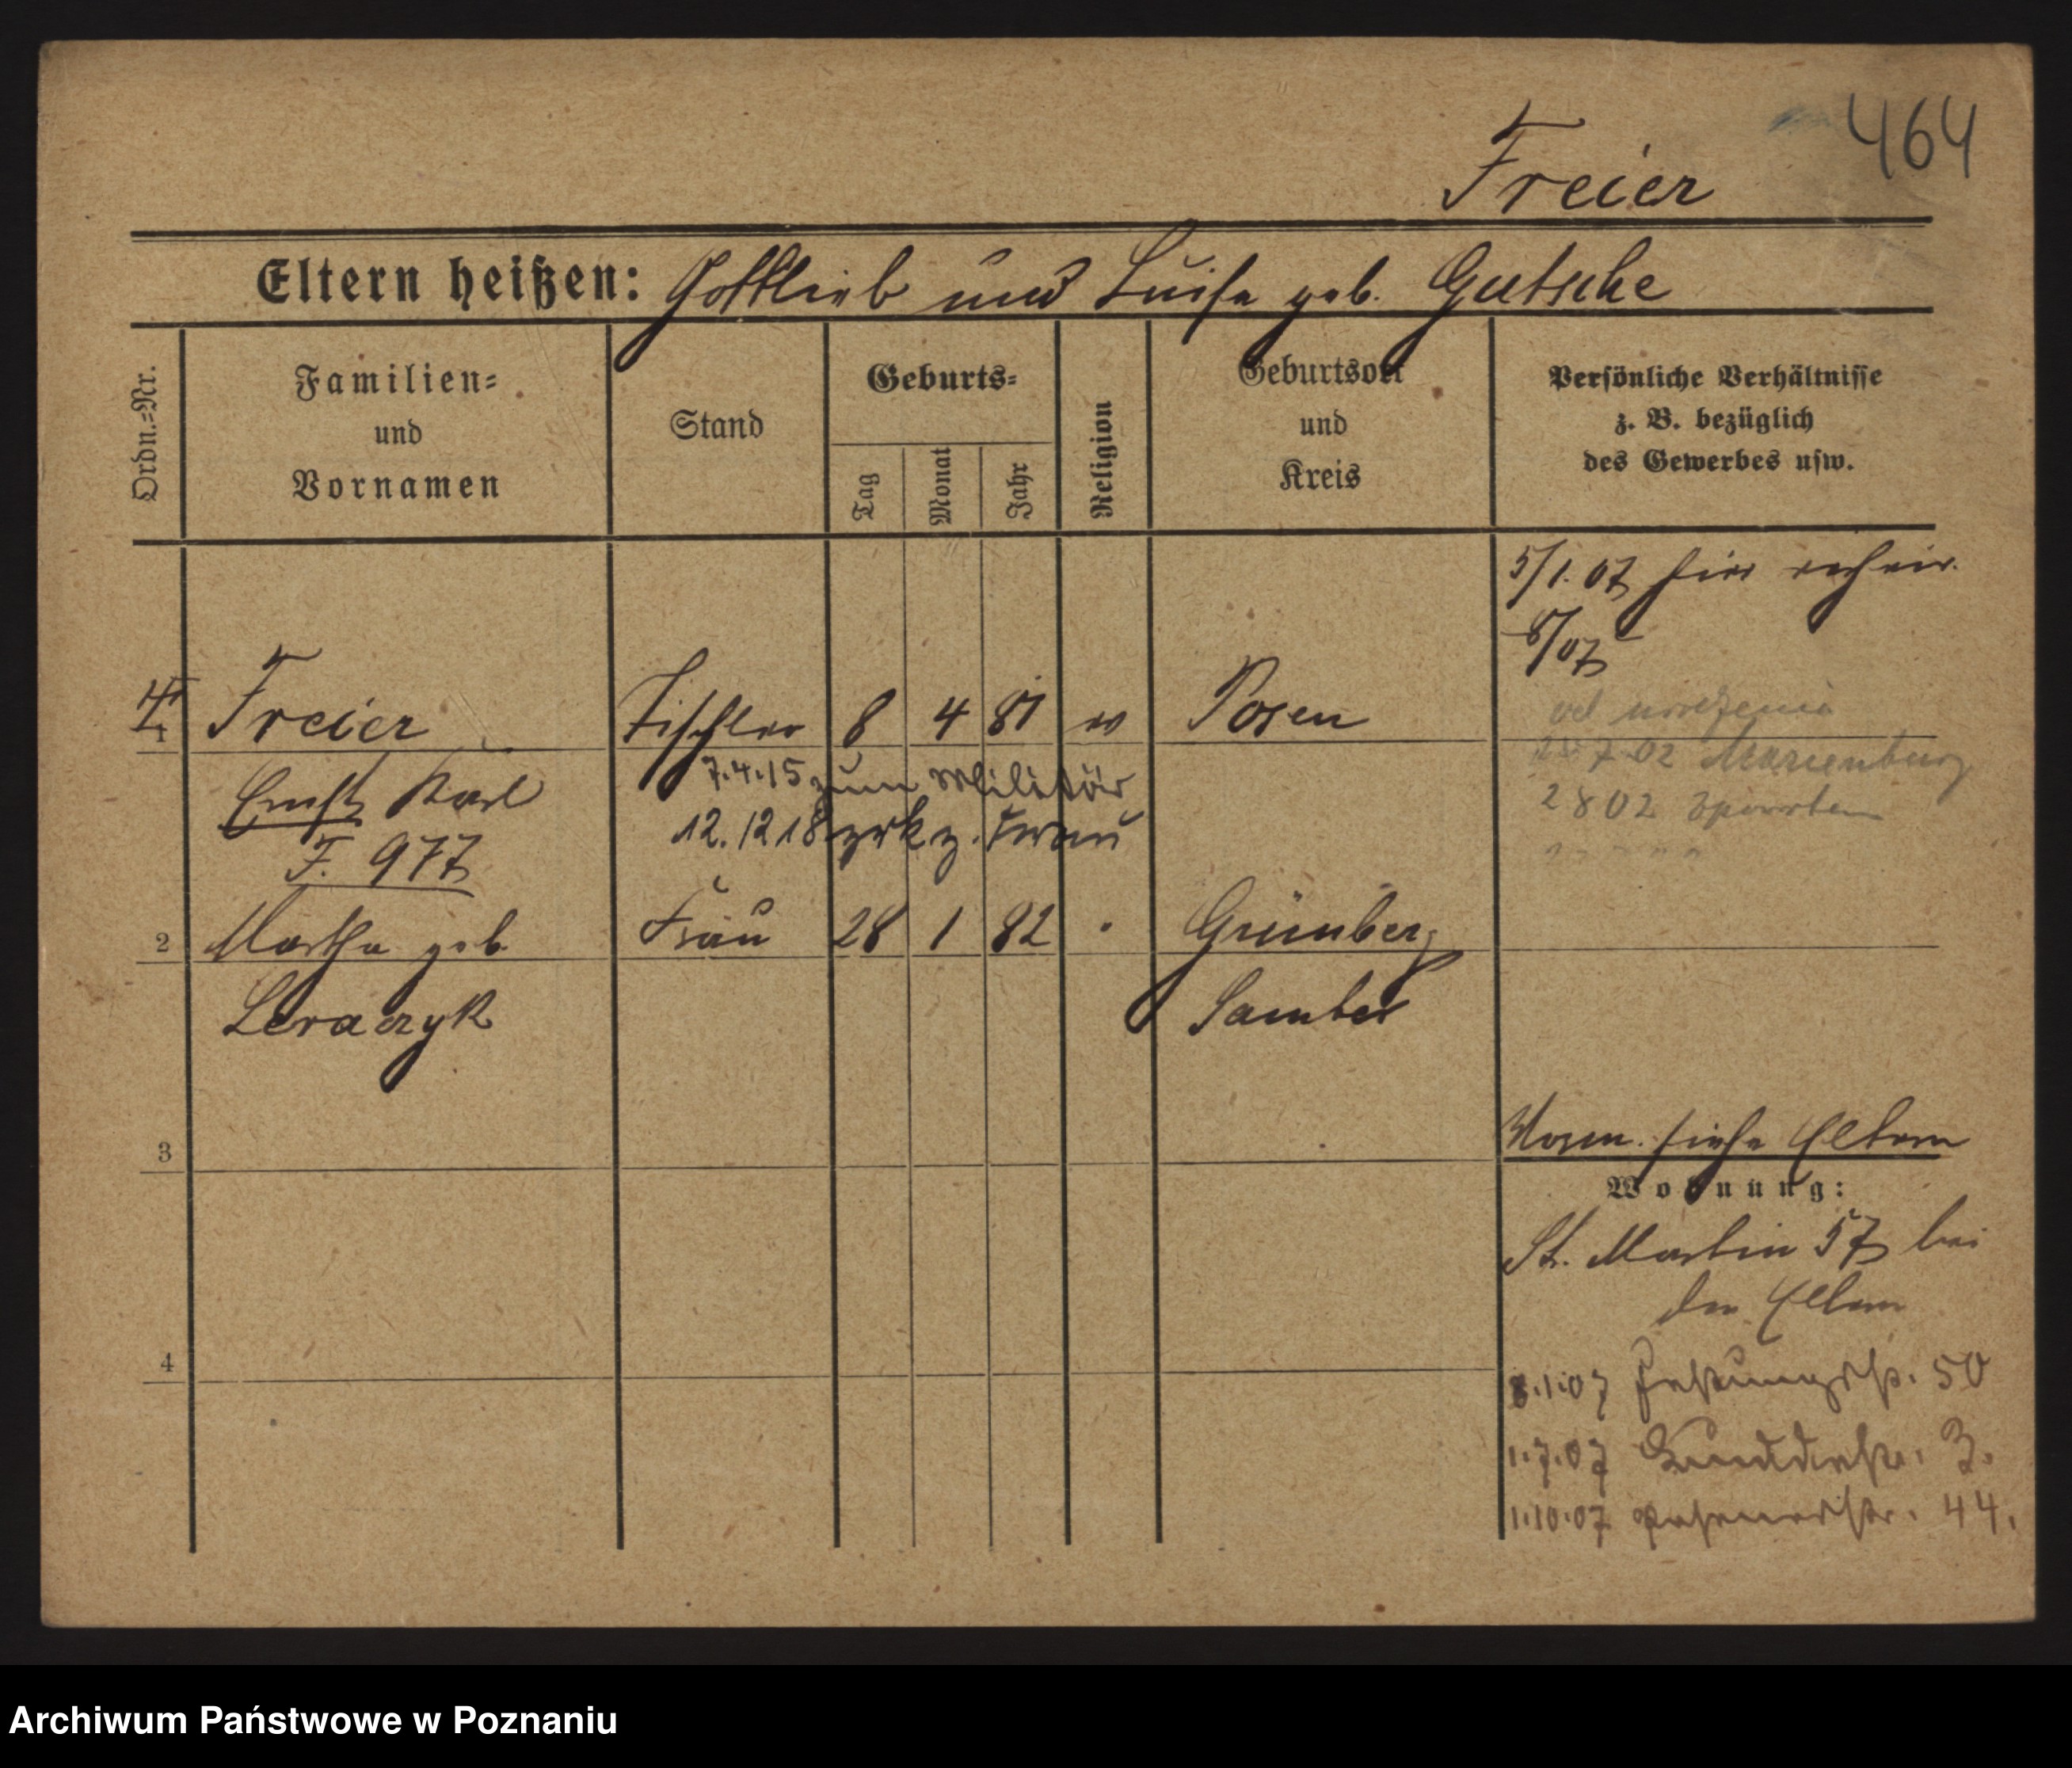 464
Freier
Eltern heißen: Gottlieb und Luise geb. Gutsche
Ordn.=Nr.
Familien=
und
Vornamen
Stand
Geburts=
Tag
Monat
Jahr
Religion
Geburtsort
und
Kreis
Persönliche Verhältnisse
z. B. bezüglich
des Gewerbes usw.
5/1. 07 hier
8/07
1 Freier Tischler 8 4 81 Posen
od urodzenia
7 02 Marienburg
Ernst Karl 7.4.15 zum Militär
2 8 02
12.12 18 zrk z. Frau
F. 977
2 Martha geb. Frau 28 1 82 Grünberg
Leraczyk Samter
3
siehe Eltern
Wohnung:
St. Martin 57 bei
den Eltern
4
8.1.07 Festungsstr. 50
1.7.07 3.
1.10.07 Posenerstr. 44.
Archiwum Państwowe w Poznaniu